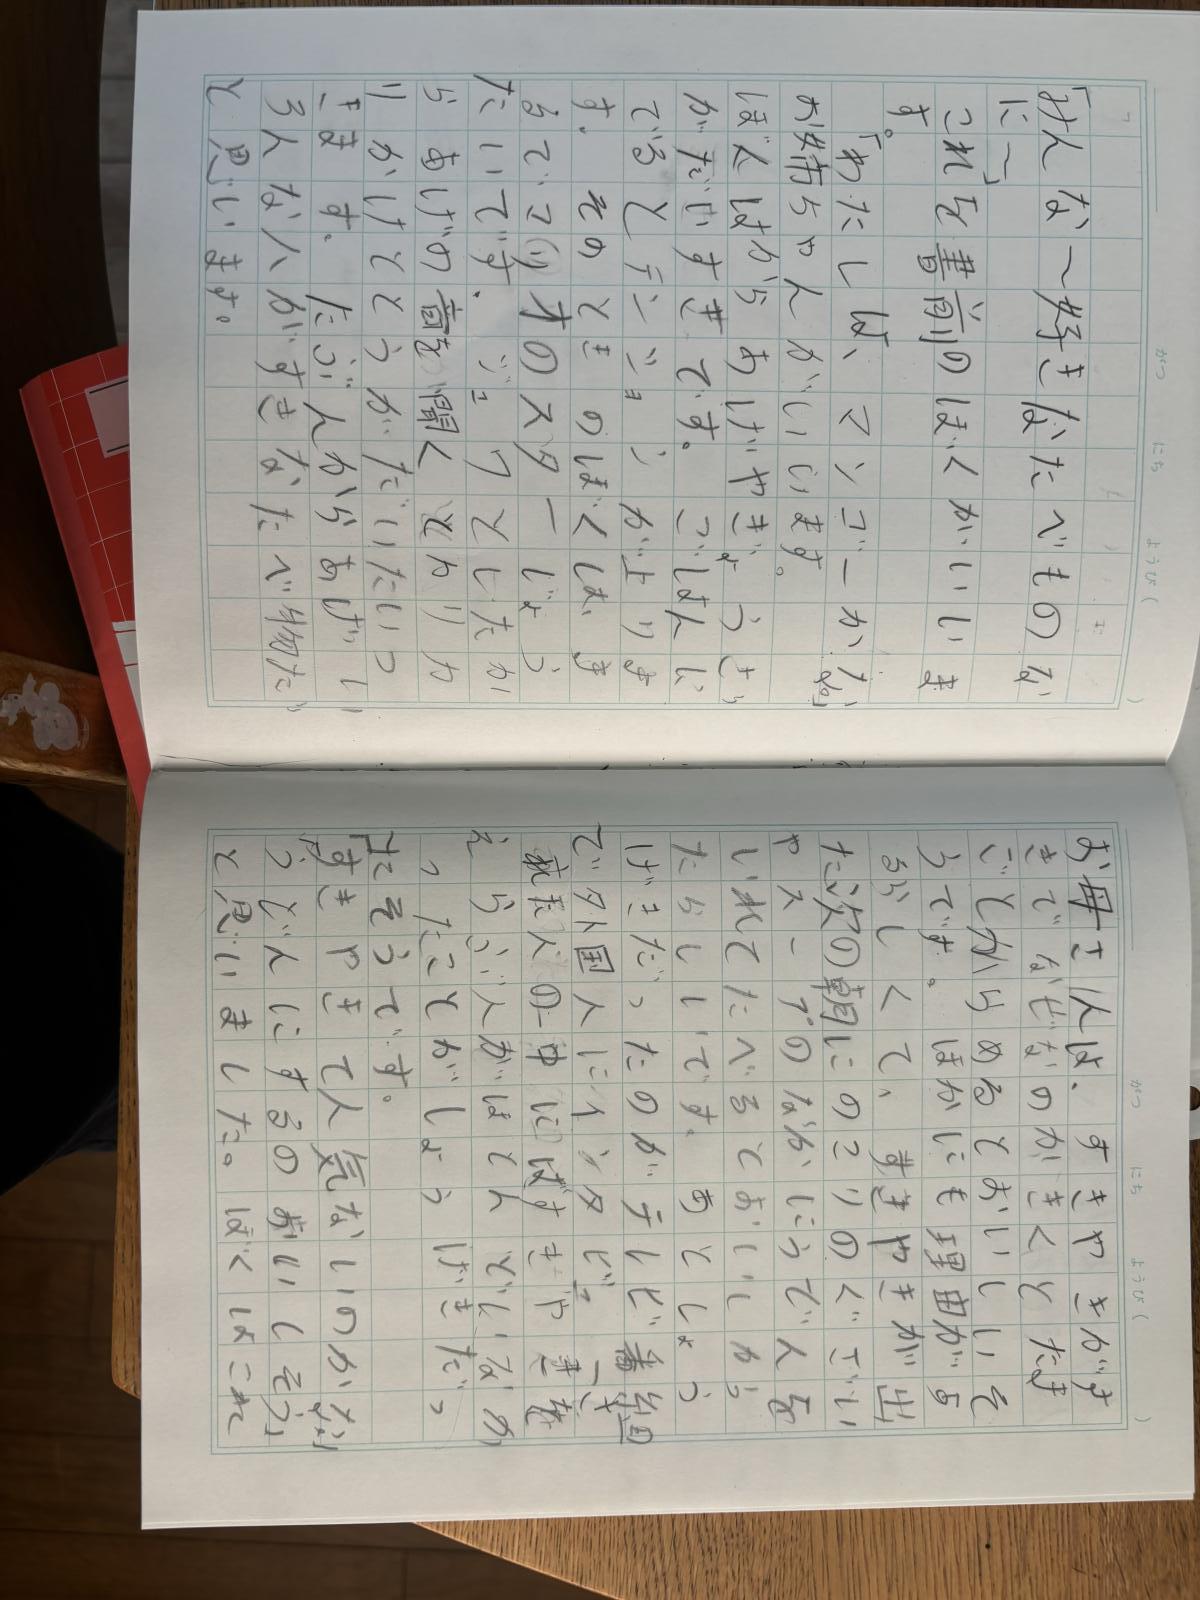 「みんな〜好きなたべものな
に〜」
これを書前のぼくがいいま
す。
「わたしは、マンゴーかな」
お姉ちゃんがいいます。
ぼくはからあげやぎょうざ
がだいすきです。ごはんに
でるとテンションが上りま
す。そのときのぼくは、ま
るでマリオのスターじょう
たいです。ジュワとしたか
らあげの音を聞くとわりわ
りかけとうがだいたいつ
きます。たぶんからあげい
ろんな人がすきなたべ物だ
と思います。
お母さんは、すきやきがす
きでなぜなのかきくとたま
ごとからめるとおいしいそ
うです。ほかにも理由がある
らしくて、すきやきが出
た次の朝にのこりのぐざい
やスープのなかにうどんを
いれてたべるとおいしいから
たらしいです。あとしょう
げきだったのがテレビ番組
で外国人にインタビュー
人の中にはすきやきを
えらぶ人がほとんどいなか
ったことがしょうげきだっ
たそうです。
「すきやきって人気ないのかな」
うどんにするのおいしそう」
と思いました。ぼくはこれ